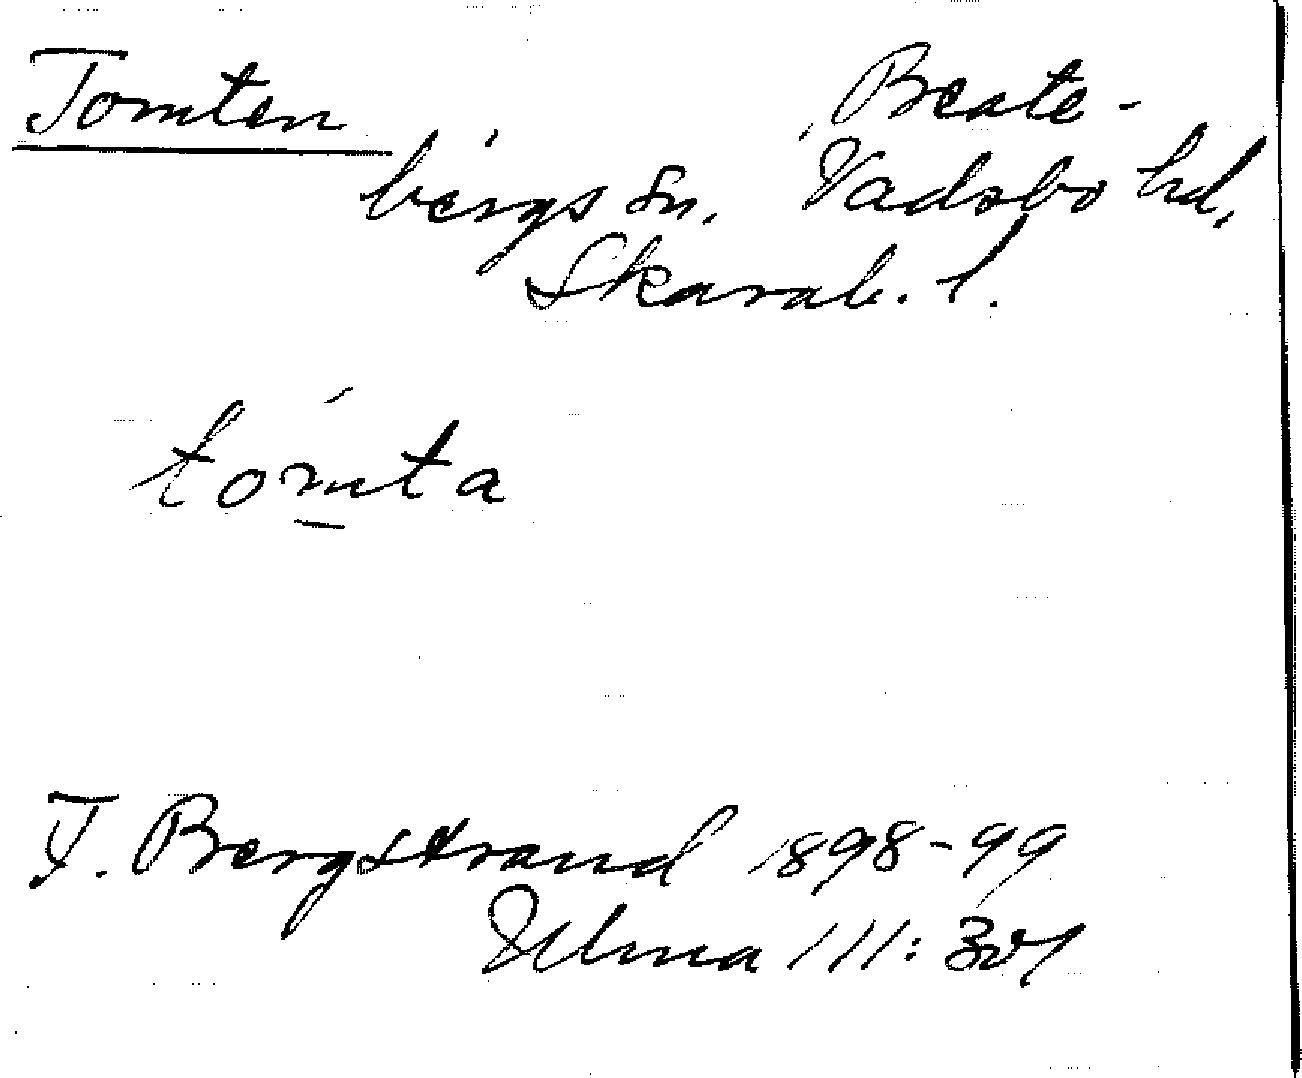 Tomten Beate-
bergs sn. Vadsbo hd,
Skarab. l.
tómta
F. Bergstrand 1898-99
Ulma 111: